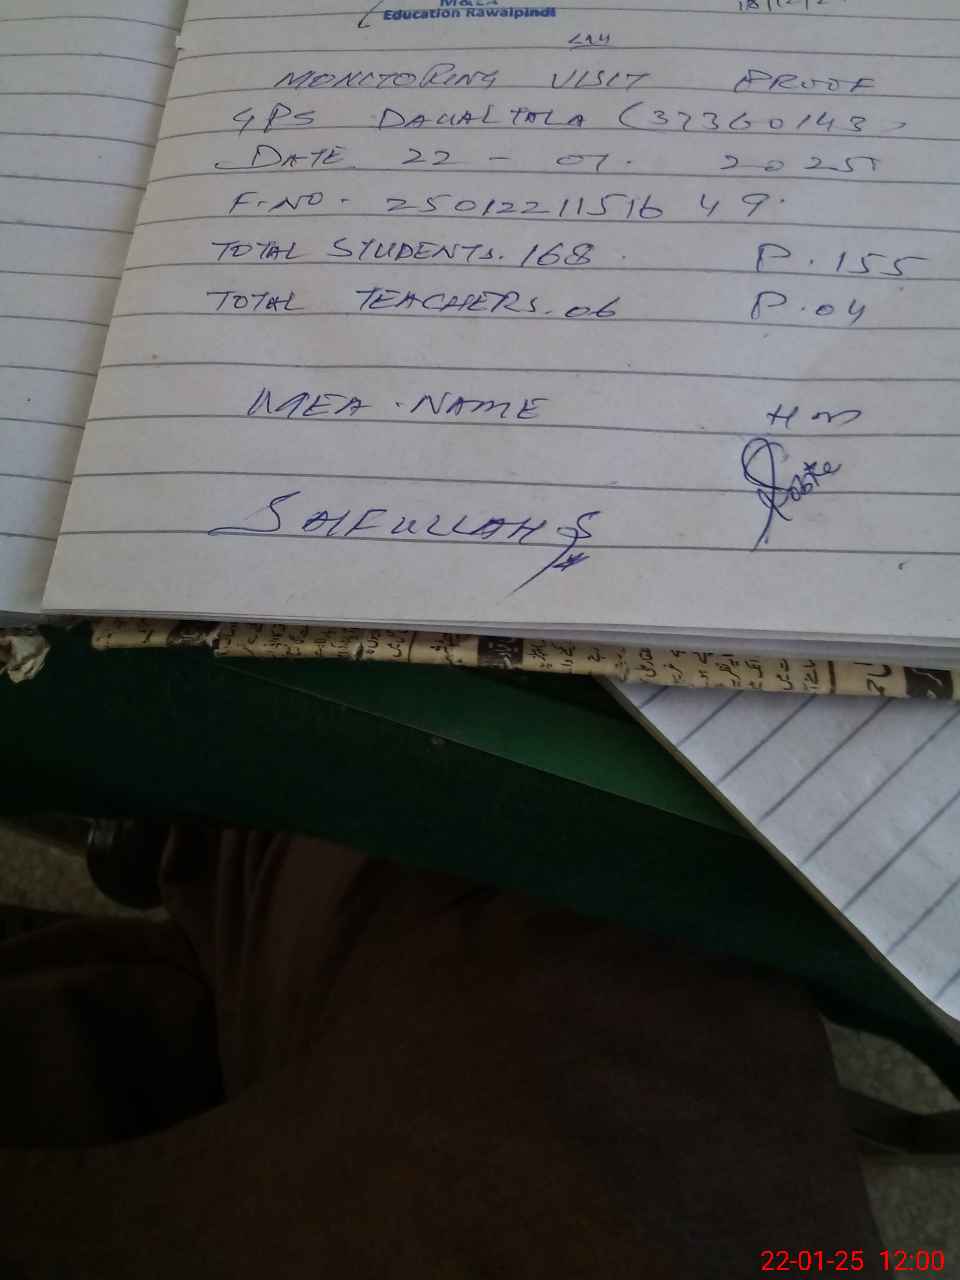 M&EA
Education Rawalpindi
MONITORING VISIT PROOF
GPS DAUALTALA (37360143)
DATE 22 - 01. 2025
F.NO. 25012211516 49.
TOTAL STUDENTS. 168. P. 155
TOTAL TEACHERS. 06 P. 04
MEA. NAME HM
SAIFULLAH
22-01-25 12:00